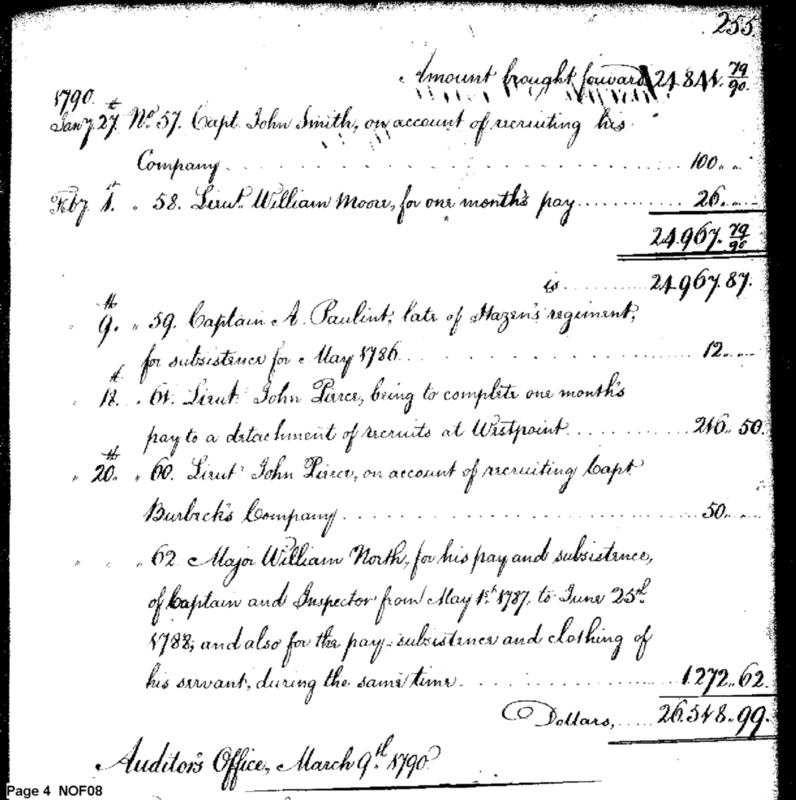 255.
Amount brought forward 24.841. 79/90.
1790.
Jany. 27th. No. 57. Capt. John Smith, on account of recruiting his
Company . . . . . . . . . . 100 „ „
Feby. 1st. „ 58. Lieut. William Moore, for one month's pay . . . . . . . . . . 26 „ „
24.967. 79/90
is . . . . . . . . . . 24.967.87.
„ 9th. „ 59. Captain A. Paulint, late of Hazen's regiment,
for subsistence for May 1786 . . . . . . . . . . 12 „ „
„ 18th. „ 61. Lieut. John Pierce, being to complete one month's
pay to a detachment of recruits at Westpoint . . . . . . . . . . 216 „ 50.
„ 20th. „ 60. Lieut. John Pierce, on account of recruiting Capt.
Burbeck's Company . . . . . . . . . . 50 „ „
„ „ „ 62. Major William North, for his pay and subsistence,
of Captain and Inspector from May 1st. 1787, to June 25th.
1788; and also for the pay subsistence and clothing of
his servant, during the same time . . . . . . . . . . 1.272 „ 62.
Dollars, . . . . . 26.518 „ 99.
Auditor's Office, March 9th. 1790.
Page 4 NOF08